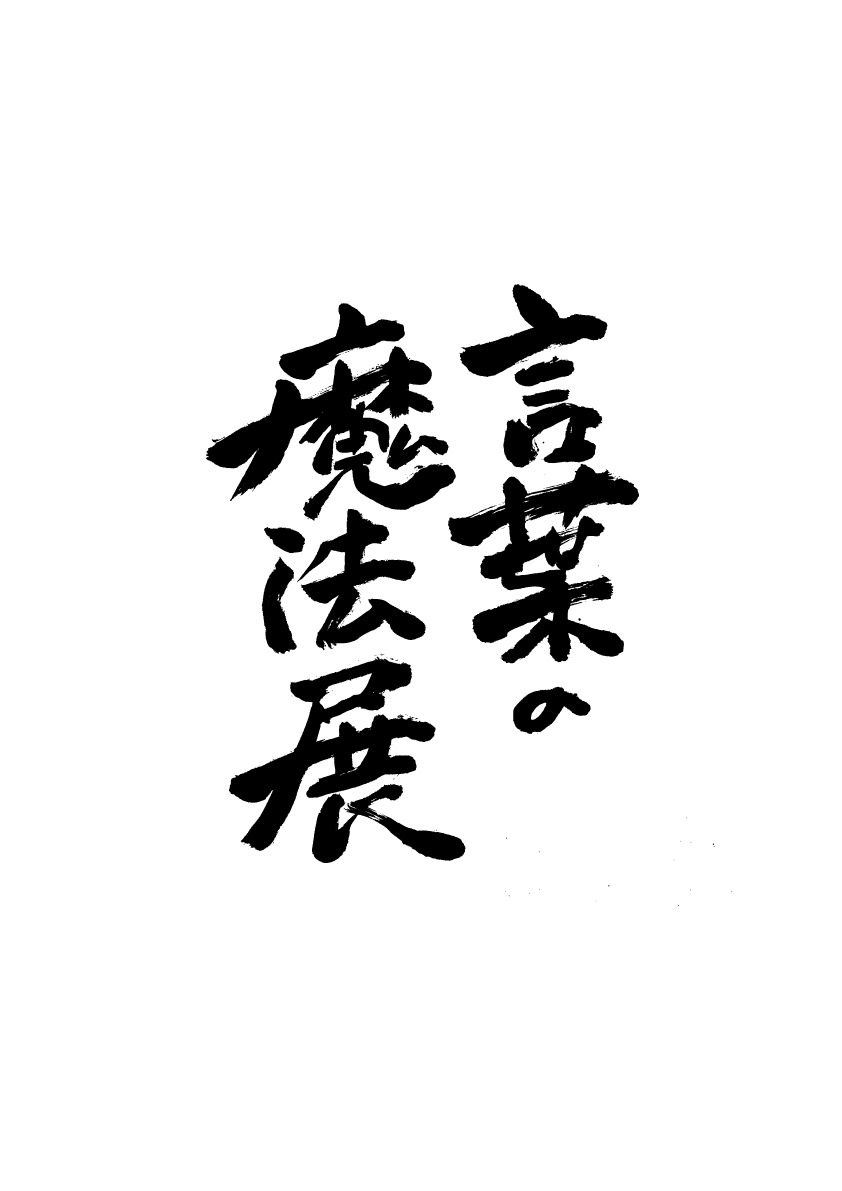 言葉の
魔法展